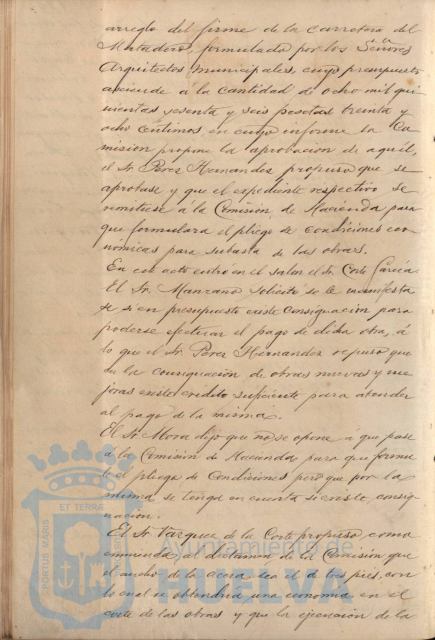 arreglo del firme de la carretera del
Matadero, formulado por los Señores
Arquitectos municipales, cuyo presupuesto
asciende á la cantidad de ocho mil qui
nientas sesenta y seis pesetas treinta y
ocho céntimos en cuyo informe la Co
misión propone la aprobación de aquel,
el Sr. Perez Hernandez propuso que se
aprobase y que el expediente respectivo se
remitiese á la Comisión de Hacienda para
que formulara el pliego de condiciones eco
nómicas para subasta de las obras.
En este acto entró en el salon el Sr. Corte García.
El Sr. Manzano solicitó se le manifesta
se si en presupuesto existe consignación para
poderse efectuar el pago de dicha obra, á
lo que el Sr. Perez Hernandez repuso que
en la consignación de obras nuevas y me
joras existe crédito suficiente para atender
al pago de la misma.
El Sr. Mora dijo que no se opone á que pase
á la Comisión de Hacienda para que formu
le el pliego de Condiciones pero que por la
misma se tenga en cuenta si existe consig
nación.
El Sr. Vazquez de la Corte propuso como
enmienda al dictámen de la Comisión que
el ancho de la acera sea el de tres pies, con
lo cual se obtendría una economía en el
coste de las obras y que la ejecución de la
PORTUS MARIS
ET TERRÆ
Ayuntamiento de
HUELVA